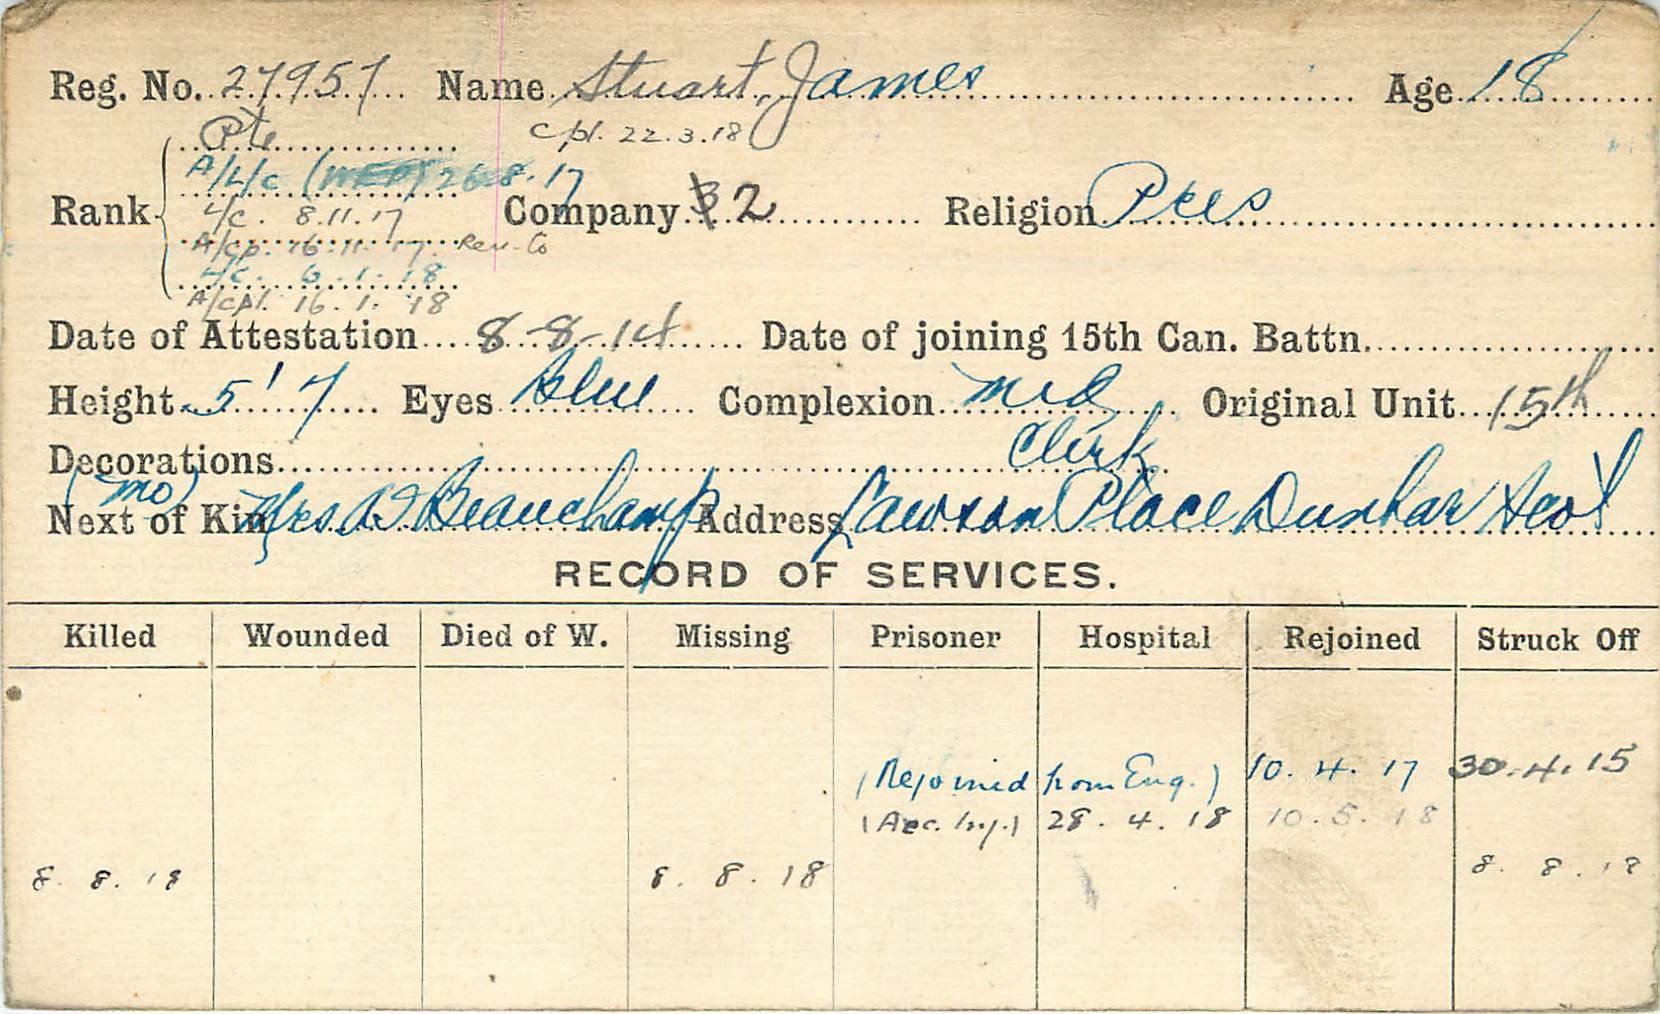 Reg. No. 27957 Name Stuart, James Age 18
Pte Cpl. 22.3.18
A/L/c 26.8.17
Rank L/c. 8.11.17 Company 2 Religion Pres
A/Cp. 16.11.17. Rev. to
L/c. 6.1.18
A/Cpl. 16.1.18
Date of Attestation 8-8-14 Date of joining 15th Can. Battn.
Height 5' 7 Eyes Blue Complexion Med Original Unit 15th
Decorations Clerk
(Mo)
Next of Kin Mrs Beauchamp Address Lawson Place Dunbar Scot
RECORD OF SERVICES.
Killed Wounded Died of W. Missing Prisoner Hospital Rejoined Struck Off
(Rejoined from Eng.) 10.4.17 30.4.15
(Acc. Inj.) 28.4.18 10.5.18
8.8.18 8.8.18 8.8.18